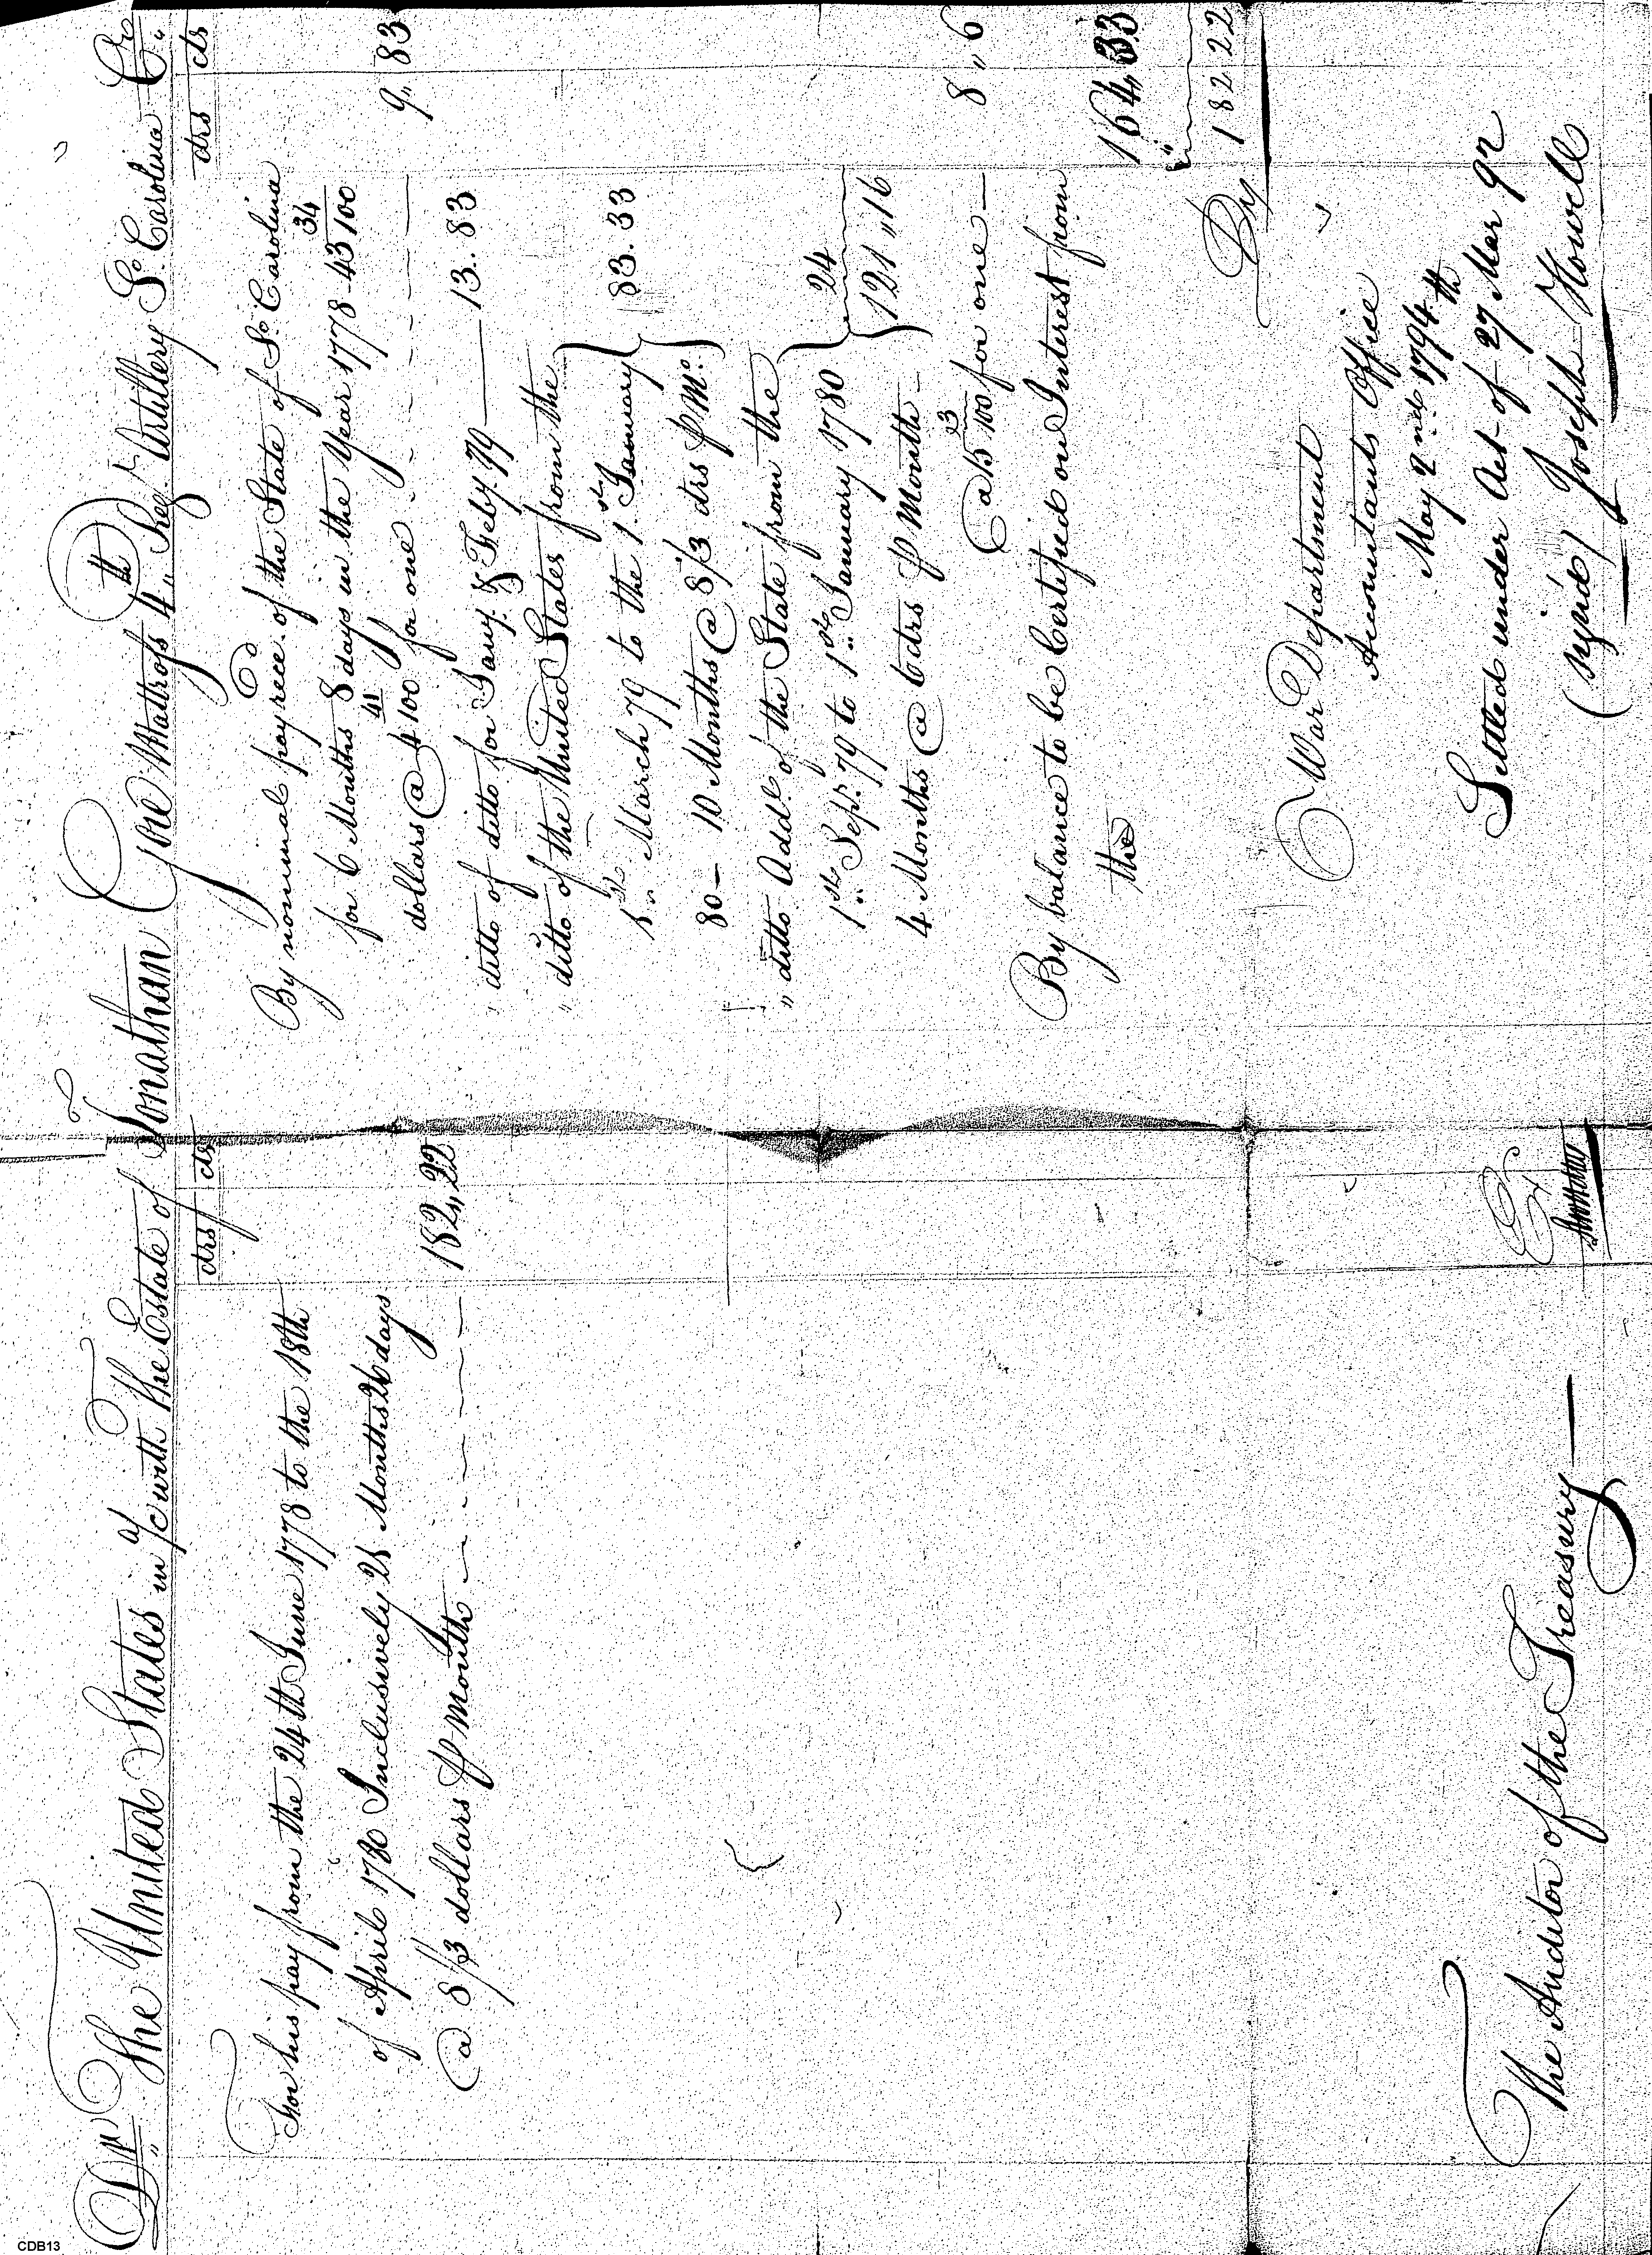 Dr The United States in a/c with The Estate of Jonathan Gore Mattross 4th Regt Artillery So Carolina Cr
drs cts
For his pay from the 24th June 1778 to the 18th
of April 1780 Inclusively 25 Months 26 days
@ 8 1/3 dollars p Month 182,,22
The Auditor of the Treasury
drs cts
By nominal pay recd. of the State of So Carolina
for 6 Months 8 days in the Year 1778 - 43 34/100
dollars @ 4 41/100 for one 9,,83
" ditto of ditto for Jany. & Feby. 79 — 13..83
" ditto of the United States from the
1st March 79 to the 1st January
80 — 10 Months @ 8/3 drs p Mo. 83.33
" ditto Addl. of the State from the
1st Sept. 79 to 1st January 1780
4 Months @ 6 drs p Month — 24
121,,16
@ 15 3/100 for one — 8,,6
By balance to be Certified on Interest from
the 164,,33
182 22
War Department
Accountants Office
May 2nd 1794th
Settled under Act of 27 Mar 92
(signed) Joseph Howell
CDB13